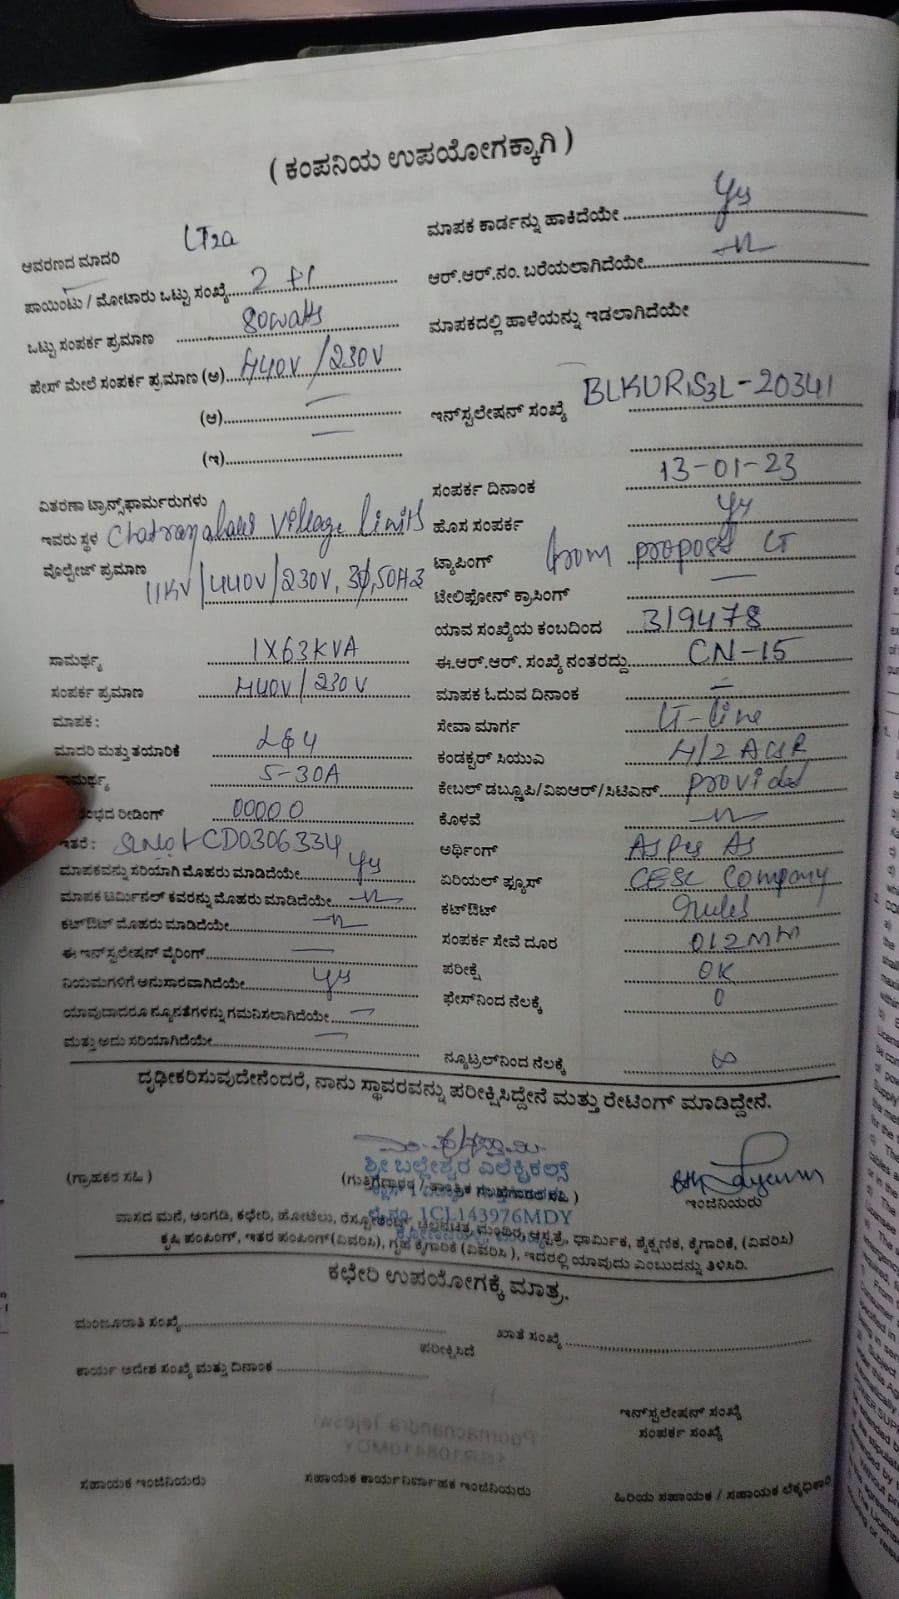 ( ಕಂಪನಿಯ ಉಪಯೋಗಕ್ಕಾಗಿ )
ಆವರಣದ ಮಾದರಿ LT2a
ಪಾಯಿಂಟು / ಮೋಟಾರು ಒಟ್ಟು ಸಂಖ್ಯೆ 2
ಒಟ್ಟು ಸಂಪರ್ಕ ಪ್ರಮಾಣ 80watts
ಪೇಸ್ ಮೇಲೆ ಸಂಪರ್ಕ ಪ್ರಮಾಣ (ಅ) 440V / 230V
(ಆ)
(ಇ)
ವಿತರಣಾ ಟ್ರಾನ್ಸ್‌ಫಾರ್ಮರುಗಳು
ಇವರು ಸ್ಥಳ Village limits
ವೊಲ್ಟೇಜ್ ಪ್ರಮಾಣ
11KV/440V/230V, 3Ø, 50HZ
ಸಾಮರ್ಥ್ಯ 1X63KVA
ಸಂಪರ್ಕ ಪ್ರಮಾಣ 440V / 230V
ಮಾಪಕ :
ಮಾದರಿ ಮತ್ತು ತಯಾರಿಕೆ
ಸಾಮರ್ಥ್ಯ 5-30A
ರೀಡಿಂಗ್ 00000
ಇತರೆ : CD0306334
ಮಾಪಕವನ್ನು ಸರಿಯಾಗಿ ಮೊಹರು ಮಾಡಿದೆಯೇ yes
ಮಾಪಕ ಟರ್ಮಿನಲ್ ಕವರನ್ನು ಮೊಹರು ಮಾಡಿದೆಯೇ
ಕಟ್‌ಔಟ್ ಮೊಹರು ಮಾಡಿದೆಯೇ
ಈ ಇನ್‌ಸ್ಟಲೇಷನ್ ವೈರಿಂಗ್
ನಿಯಮಗಳಿಗೆ ಅನುಸಾರವಾಗಿದೆಯೇ yes
ಯಾವುದಾದರೂ ನ್ಯೂನತೆಗಳನ್ನು ಗಮನಿಸಲಾಗಿದೆಯೇ
ಮತ್ತು ಅದು ಸರಿಯಾಗಿದೆಯೇ
ಮಾಪಕ ಕಾರ್ಡನ್ನು ಹಾಕಿದೆಯೇ yes
ಆರ್.ಆರ್.ನಂ. ಬರೆಯಲಾಗಿದೆಯೇ
ಮಾಪಕದಲ್ಲಿ ಹಾಳೆಯನ್ನು ಇಡಲಾಗಿದೆಯೇ
ಇನ್‌ಸ್ಟಲೇಷನ್ ಸಂಖ್ಯೆ BLKUR1S3L-20341
ಸಂಪರ್ಕ ದಿನಾಂಕ 13-01-23
ಹೊಸ ಸಂಪರ್ಕ yes
ಟ್ಯಾಪಿಂಗ್ from LT
ಟೇಲಿಫೋನ್ ಕ್ರಾಸಿಂಗ್
ಯಾವ ಸಂಖ್ಯೆಯ ಕಂಬದಿಂದ 319478
ಈ.ಆರ್.ಆರ್. ಸಂಖ್ಯೆ ನಂತರದ್ದು CN-15
ಮಾಪಕ ಓದುವ ದಿನಾಂಕ
ಸೇವಾ ಮಾರ್ಗ LT-line
ಕಂಡಕ್ಟರ್ ಸಿಯುಎ 4/2 ACSR
ಕೇಬಲ್ ಡಬ್ಲ್ಯೂಪಿ/ವಿಐಆರ್/ಸಿಟಿಎನ್ provided
ಕೊಳವೆ
ಅರ್ಥಿಂಗ್ As Per As
ಏರಿಯಲ್ ಫ್ಯೂಸ್ CESC Company
ಕಟ್‌ಔಟ್ rules
ಸಂಪರ್ಕ ಸೇವೆ ದೂರ 012MM
ಪರೀಕ್ಷೆ OK
ಫೇಸ್‌ನಿಂದ ನೆಲಕ್ಕೆ 0
ನ್ಯೂಟ್ರಲ್‌ನಿಂದ ನೆಲಕ್ಕೆ ∞
ದೃಢೀಕರಿಸುವುದೇನೆಂದರೆ, ನಾನು ಸ್ಥಾವರವನ್ನು ಪರೀಕ್ಷಿಸಿದ್ದೇನೆ ಮತ್ತು ರೇಟಿಂಗ್ ಮಾಡಿದ್ದೇನೆ.
ಶ್ರೀ ಬಲ್ಲೇಶ್ವರ ಎಲೆಕ್ಟ್ರಿಕಲ್ಸ್
(ಗ್ರಾಹಕರ ಸಹಿ ) ಇಂಜಿನಿಯರು
1CL143976MDY
ವಾಸದ ಮನೆ, ಅಂಗಡಿ, ಕಛೇರಿ, ಹೋಟೆಲು, ಆಸ್ಪತ್ರೆ, ಧಾರ್ಮಿಕ, ಶೈಕ್ಷಣಿಕ, ಕೈಗಾರಿಕೆ, (ವಿವರಿಸಿ)
ಕೃಷಿ ಪಂಪಿಂಗ್, ಇತರ ಪಂಪಿಂಗ್ (ವಿವರಿಸಿ), ಗೃಹ ಕೈಗಾರಿಕೆ (ವಿವರಿಸಿ ), ಇದರಲ್ಲಿ ಯಾವುದು ಎಂಬುದನ್ನು ತಿಳಿಸಿರಿ.
ಕಛೇರಿ ಉಪಯೋಗಕ್ಕೆ ಮಾತ್ರ.
ಮಂಜೂರಾತಿ ಸಂಖ್ಯೆ ಖಾತೆ ಸಂಖ್ಯೆ
ಪರೀಕ್ಷಿಸಿದೆ
ಕಾರ್ಯ ಆದೇಶ ಸಂಖ್ಯೆ ಮತ್ತು ದಿನಾಂಕ
ಇನ್‌ಸ್ಟಲೇಷನ್ ಸಂಖ್ಯೆ
ಸಂಪರ್ಕ ಸಂಖ್ಯೆ
ಸಹಾಯಕ ಇಂಜಿನಿಯರು ಸಹಾಯಕ ಕಾರ್ಯನಿರ್ವಾಹಕ ಇಂಜಿನಿಯರು ಹಿರಿಯ ಸಹಾಯಕ / ಸಹಾಯಕ ಲೆಕ್ಕಧಿಕಾರಿ